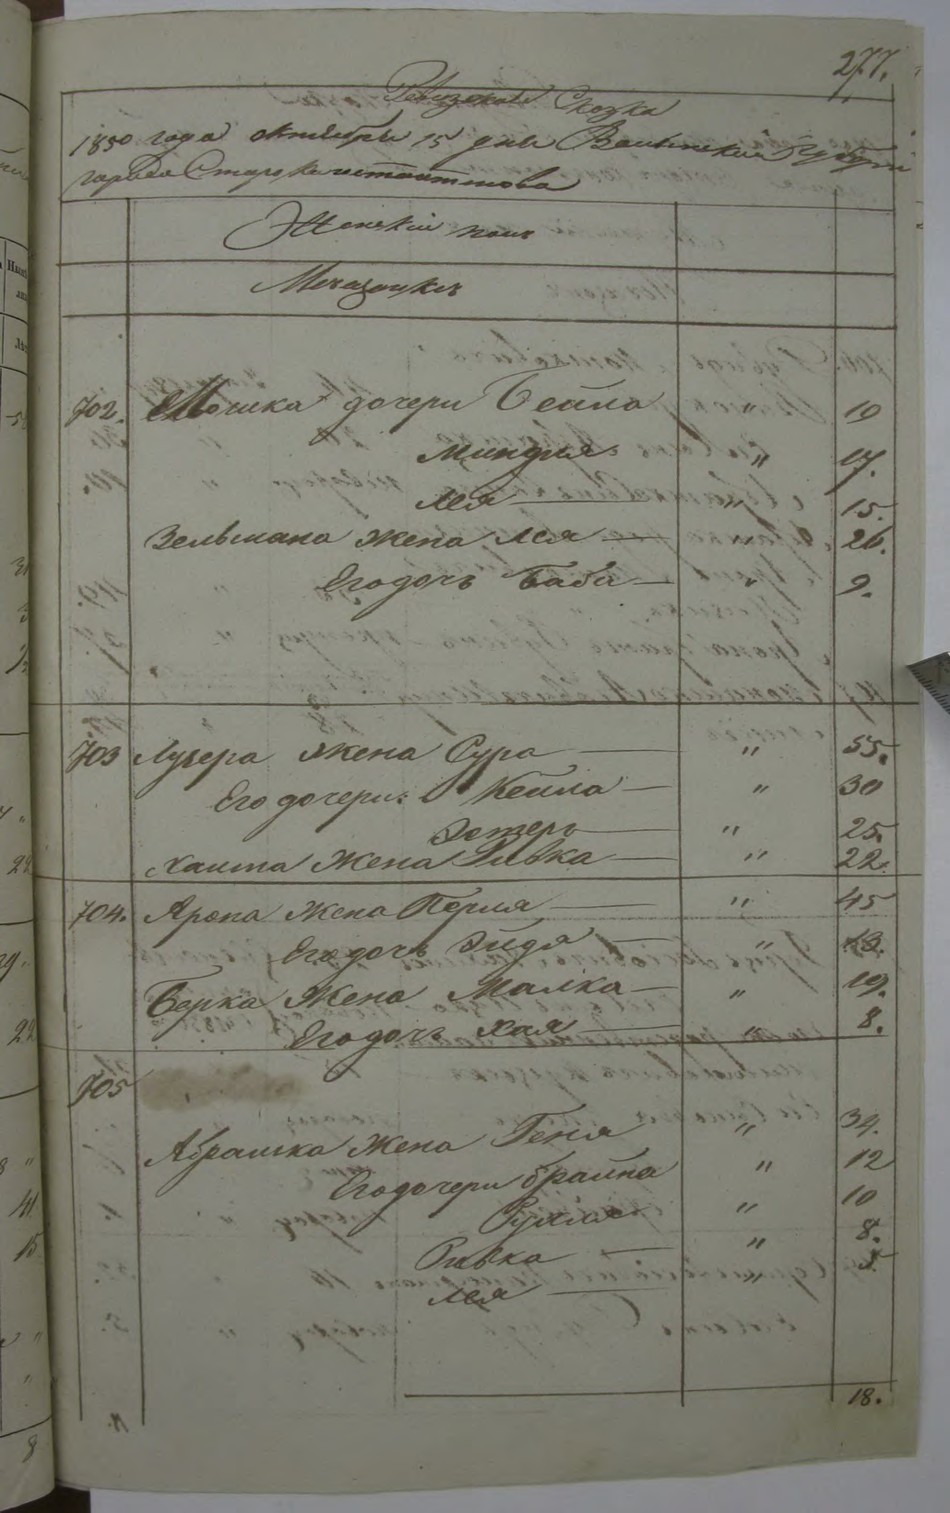 277.
Ревизская Сказка
1850 года октября 15 дня Волынской Губерни
города Староконстантинова
Женский полъ
Мещанокъ
702. Мошка дочери Бейла " 19
Миндля " 17.
Лея " 15.
Зельмана жена Лея — 26.
Его дочь Баба — " 9.
703 Лузера жена Сура — " 55.
Его дочери: Кейла — " 30
Эстеръ — " 25.
Хаима жена Ривка — " 22.
704. Арона жена Перля — " 45
Его дочь Эйдя — " 13.
Берка жена Малка — " 19.
Его дочь Хая — " 8.
705
Абрашка жена Геня " 34.
Его дочери Брайна " 12
Рухля " 10
Ривка — " 8.
Лея — " 5
18.